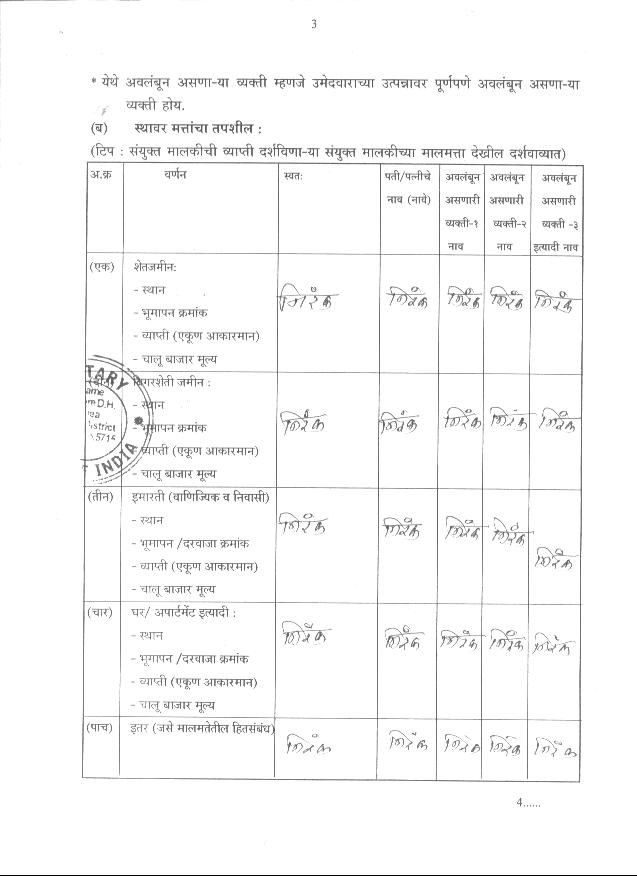 3
* येथे अवलंबून असणा-या व्यक्ती म्हणजे उमेदवाराच्या उत्पन्नावर पूर्णपणे अवलंबून असणा-या
व्यक्ती होय.
(ब) स्थावर मत्तांचा तपशील :
(टिप : संयुक्त मालकीची व्याप्ती दर्शविणा-या संयुक्त मालकीच्या मालमत्ता देखील दर्शवाव्यात)
अ.क्र वर्णन स्वतः पती/पत्नीचे अवलंबून अवलंबून अवलंबून
नाव (नावे) असणारी असणारी असणारी
व्यक्ती-१ व्यक्ती-२ व्यक्ती -३
नाव नाव इत्यादी नाव
(एक) शेतजमीन:
- स्थान निरंक निरंक निरंक निरंक निरंक
- भूमापन क्रमांक
- व्याप्ती (एकूण आकारमान)
- चालू बाजार मूल्य
बिगरशेती जमीन :
- स्थान
- भूमापन क्रमांक निरंक निरंक निरंक निरंक निरंक
- व्याप्ती (एकूण आकारमान)
- चालू बाजार मूल्य
TARY
D.H.
District
5715
INDIA
(तीन) इमारती (वाणिज्यिक व निवासी)
- स्थान निरंक निरंक निरंक निरंक
- भूमापन /दरवाजा क्रमांक
- व्याप्ती (एकूण आकारमान) निरंक
- चालू बाजार मूल्य
(चार) घर/ अपार्टमेंट इत्यादी :
- स्थान निरंक निरंक निरंक निरंक निरंक
- भूमापन /दरवाजा क्रमांक
- व्याप्ती (एकूण आकारमान)
- चालू बाजार मूल्य
(पाच) इतर (जसे मालमतेतील हितसंबंध)
निरंक निरंक निरंक निरंक निरंक
4......